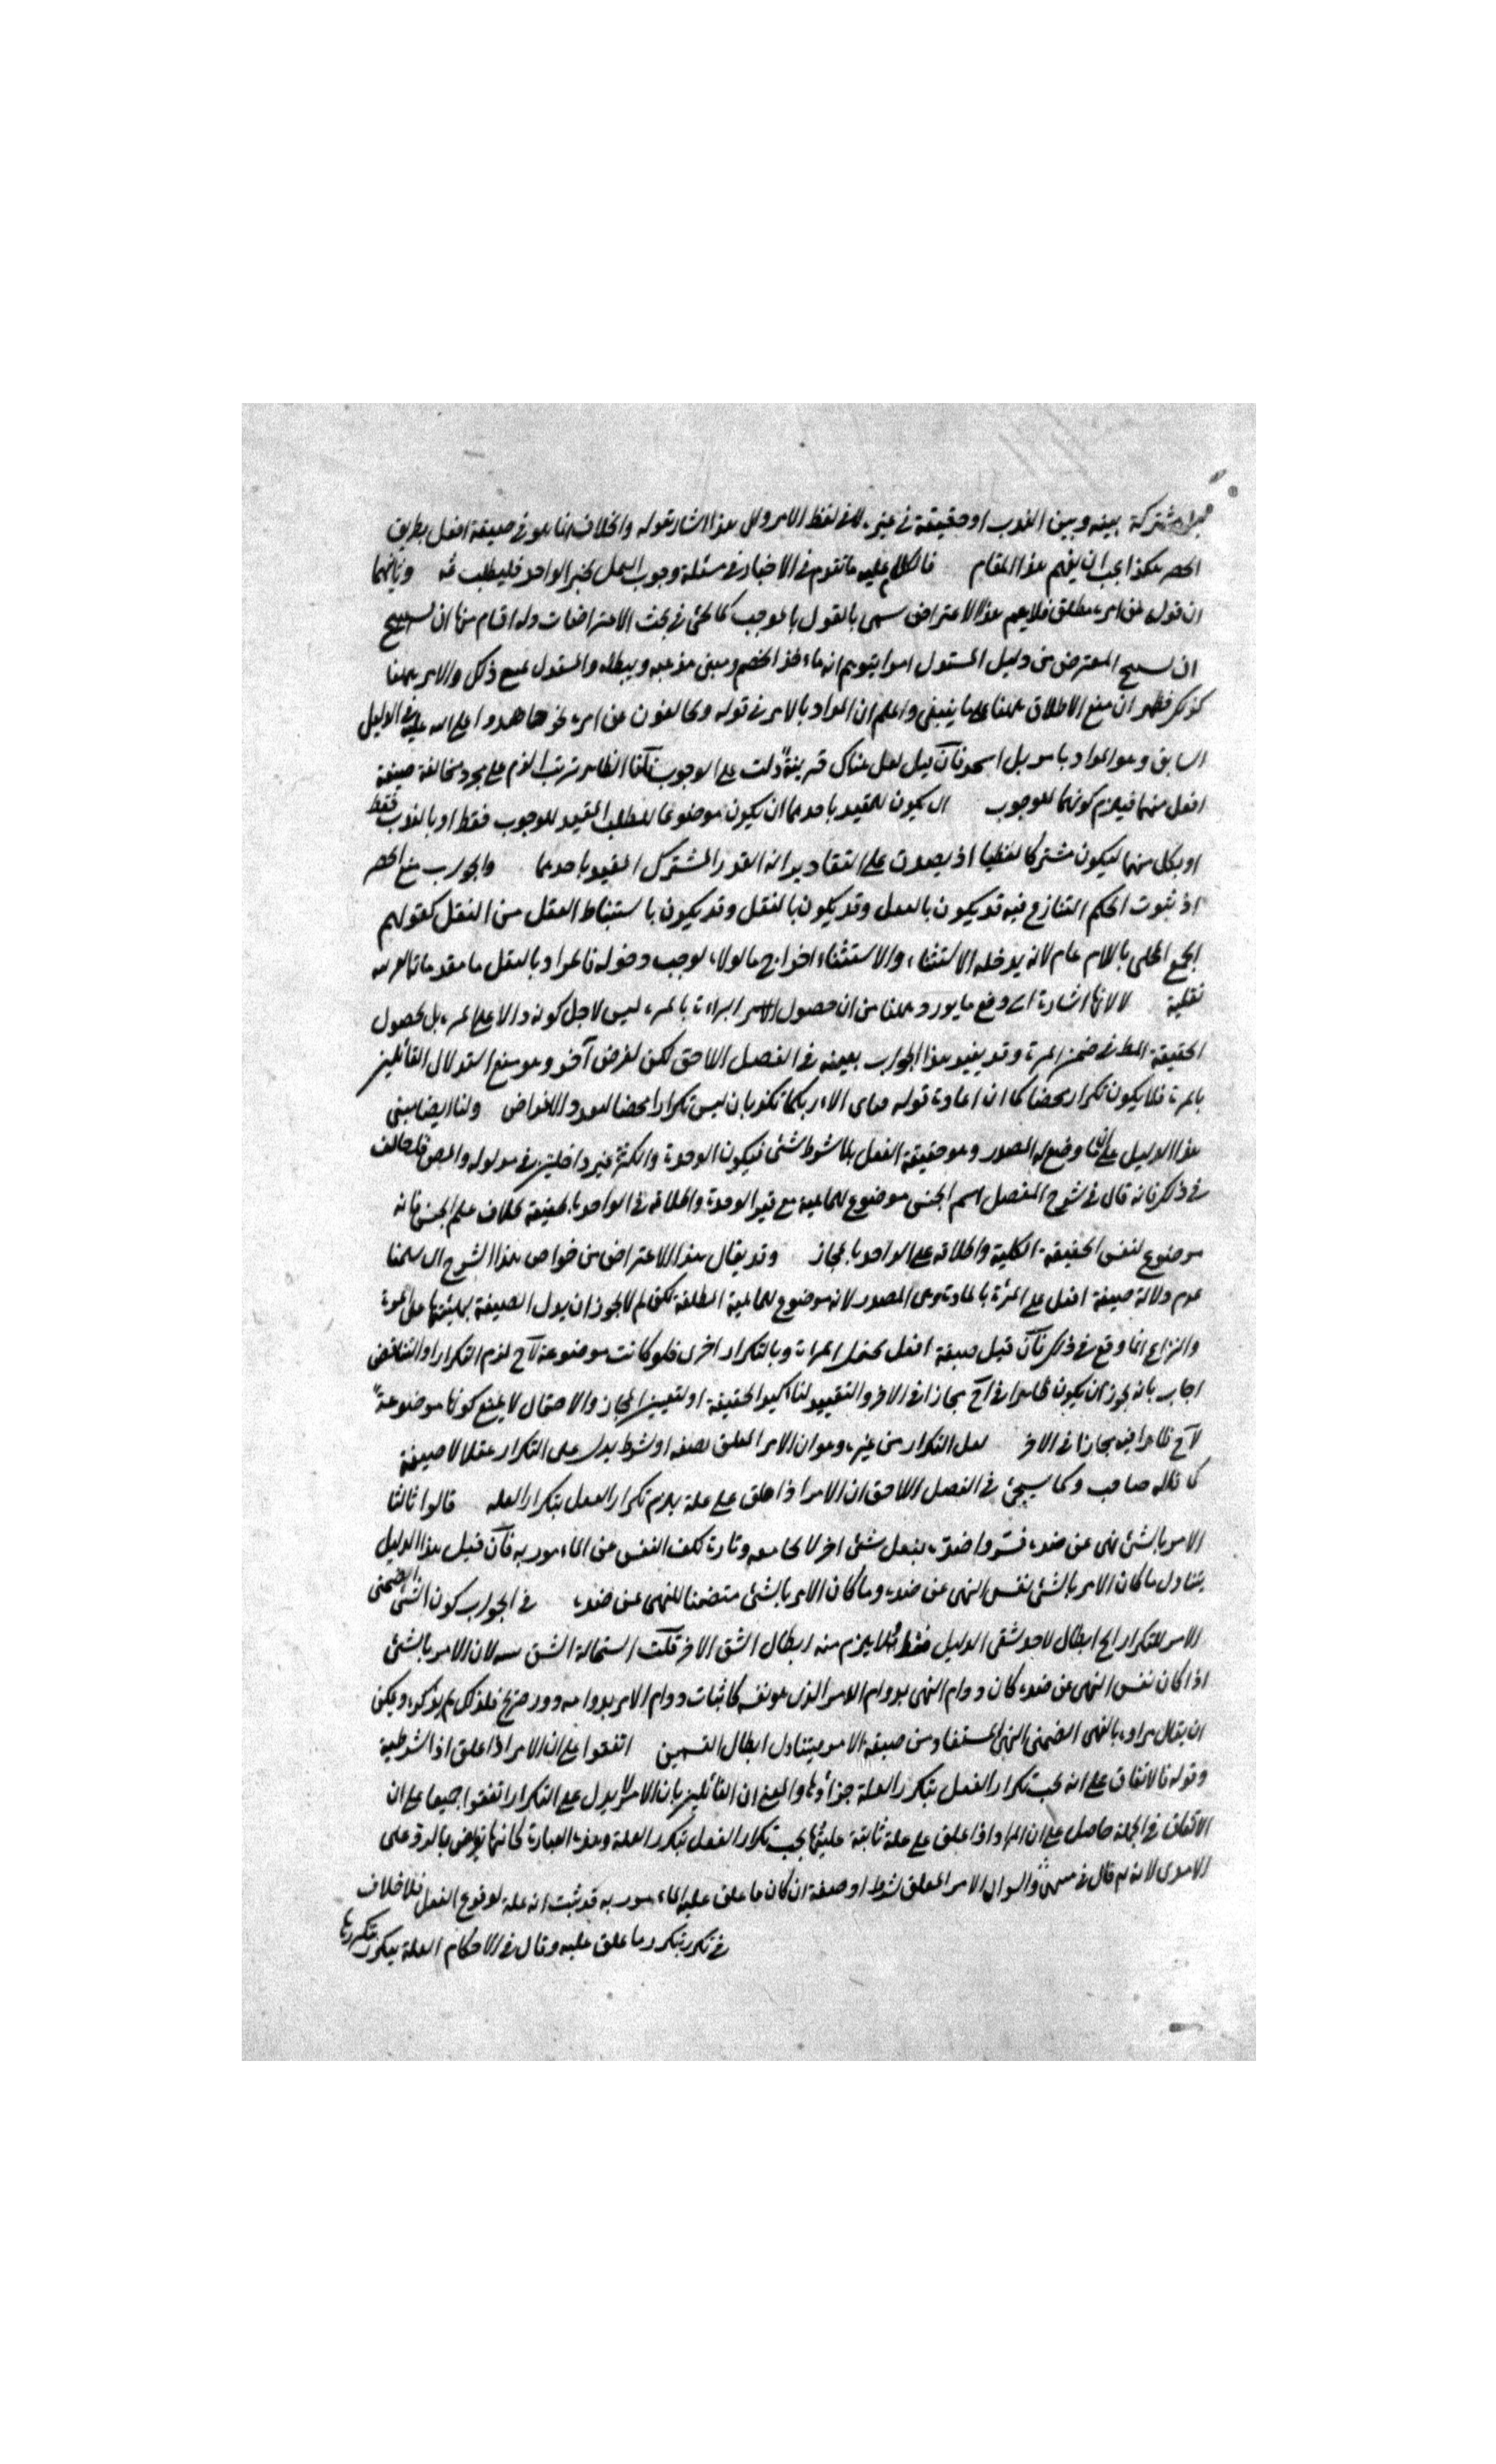 مشتركة بينه وبين الندب او حقيقة في غيره لا في لفظ الامر والى هذا اشار بقوله والخلاف انما هو في صيغة افعل بطريق
الحصر هكذا يجب ان يفهم هذا المقام فالكلام عليه ما تقدم في الاخبار في مسئلة وجوب العمل بخبر الواحد فليطلب ثمه وثانيهما
ان قوله عن امره مطلق فلا يعم هذا الاعتراض سمى بالقول بالموجب كما يجئ في بحث الاعتراضات وله اقسام منها ان
ان المعترض من دليل المستدل امرا يتوهم انه مأخذ الخصم ومبنى مذهبه ويبطله والمستدل يمنع ذلك والامر ههنا
كذلك فظهر ان منع الاطلاق ههنا على ما ينبغي واعلم ان المراد بالامر في قوله يخالفون عن امره في الدليل
السابق وهو المراد بامر بل اسجدوا فان قيل لعل هناك قرينة دلت على الوجوب قلنا الظاهر ترتب الذم على مجرد مخالفة صيغة
افعل منهما فيلزم كونهما للوجوب ان يكون للمقيد باحدهما ان يكون موضوعا للطلب المقيد للوجوب فقط او بالندب فقط
او بكل منهما ليكون مشتركا لفظيا اذ يصدق على التقادير انه القدر المشترك المقيد باحدهما والجواب منع الحصر
اذ ثبوت الحكم المتنازع فيه قد يكون بالعقل وقد يكون بالنقل وقد يكون باستنباط العقل من النقل كقولهم
الجمع المحلى باللام عام لانه يدخله الاستثناء والاستثناء اخراج ما لولاه لوجب دخوله فالمراد بالنقل ما مقدماته
نقلية لا لانها اشارة الى دفع ما يورد ههنا من ان حصول البراءة بالمرة ليس لاجل كونه دالا على المرة بل لحصول
الحقيقة في ضمن المرة وقد يفيد هذا الجواب بعينه في الفصل اللاحق لكن لغرض آخر وهو منع استدلال القائلين
بالمرة فلا يكون تكرارا محضا كما ان اعادة قوله فباى آلاء ربكما تكذبان ليس تكرارا محضا لتعدد الاغراض ولنا ايضا مبنى
هذا الدليل على ما وضع له المصدر وهو حقيقة الفعل بلا شرط شئ فيكون الوحدة والكثرة غير داخلتين في مدلوله والمص خالف
في ذلك فانه قال في شرح المفصل اسم الجنس موضوع للماهية مع قيد الوحدة واطلاقه في الواحد بالحقيقة بخلاف علم الجنس فانه
موضوع لنفس الحقيقة الكلية واطلاقه على الواحد بالمجاز وقد يقال هذا الاعتراض من خواص هذا الشرح ان سلمنا
عدم دلالة صيغة افعل على المرة بالمادة وهى المصدر لانه موضوع للماهية المطلقة لكن لم لا يجوز ان يدل الصيغة بهيئتها على المرة
والنزاع انما وقع في ذلك فان قيل صيغة افعل يحتمل المرات وبالتكرار اخرى فلو كانت موضوعة لاح لزم التكرار او التناقض
اجاب بانه يجوز ان يكون ظاهرا في اح مجازا في الاخر والتقييد لتاكيد الحقيقة او لتعيين المجاز والاحتمال لا يمنع كونها موضوعة
لاح ظاهرا فيه مجازا في الاخر لعل التكرار من غيره وهو ان الامر المعلق بصفة او شرط يدل على التكرار عقلا لا صيغة
كما قاله صاحب وكما سيجئ في الفصل اللاحق ان الامر اذا علق على علة يلزم تكرار الفعل بتكرار العلة قالوا ثالثا
الامر بالشئ نهى عن ضده فسروا ضده بفعل شئ اخر لا يجامعه وتارة بكف النفس عن المامور به فان قيل هذا الدليل
يتناول ما كان الامر بالشئ نفس النهى عن ضده وما كان الامر بالشئ متضمنا للنهى عن ضده في الجواب كون النهى الضمنى
الامر للتكرار الخ ابطال لاحد شقى الدليل فقط فلا يلزم منه ابطال الشق الاخر قلت استحالة الشق لان الامر بالشئ
اذا كان نفس النهى عن ضده كان دوام النهى بدوام الامر الذى هو نفسه فاثبات دوام الامر بدوامه دور صريح فلذلك لم يذكره ويمكن
ان يقال مراده بالنهى الضمنى النهى المستفاد من صيغة الامر يتناول ابطال القسمين اتفقوا على ان الامر اذا علق اذا الشرطية
وقوله فالاتفاق على انه يجب تكرار الفعل بتكرر العلة جزاؤها والمعنى ان القائلين بان الامر لا يدل على التكرار اتفقوا جميعا على ان
الاتفاق في الجملة حاصل على ان الامر اذا علق على علة ثابتة عليتها يجب تكرار الفعل بتكرر العلة وهذه العبارة كانها تعرض بالرد على
الآمدى لانه قال في منتهى السول الامر المعلق بشرط او صفة ان كان ما علق عليه المامور به قد ثبت انه علة لوقوع الفعل فلا خلاف
في تكرره بتكرر ما علق عليه وقال في الاحكام العلة يتكرر بتكررها